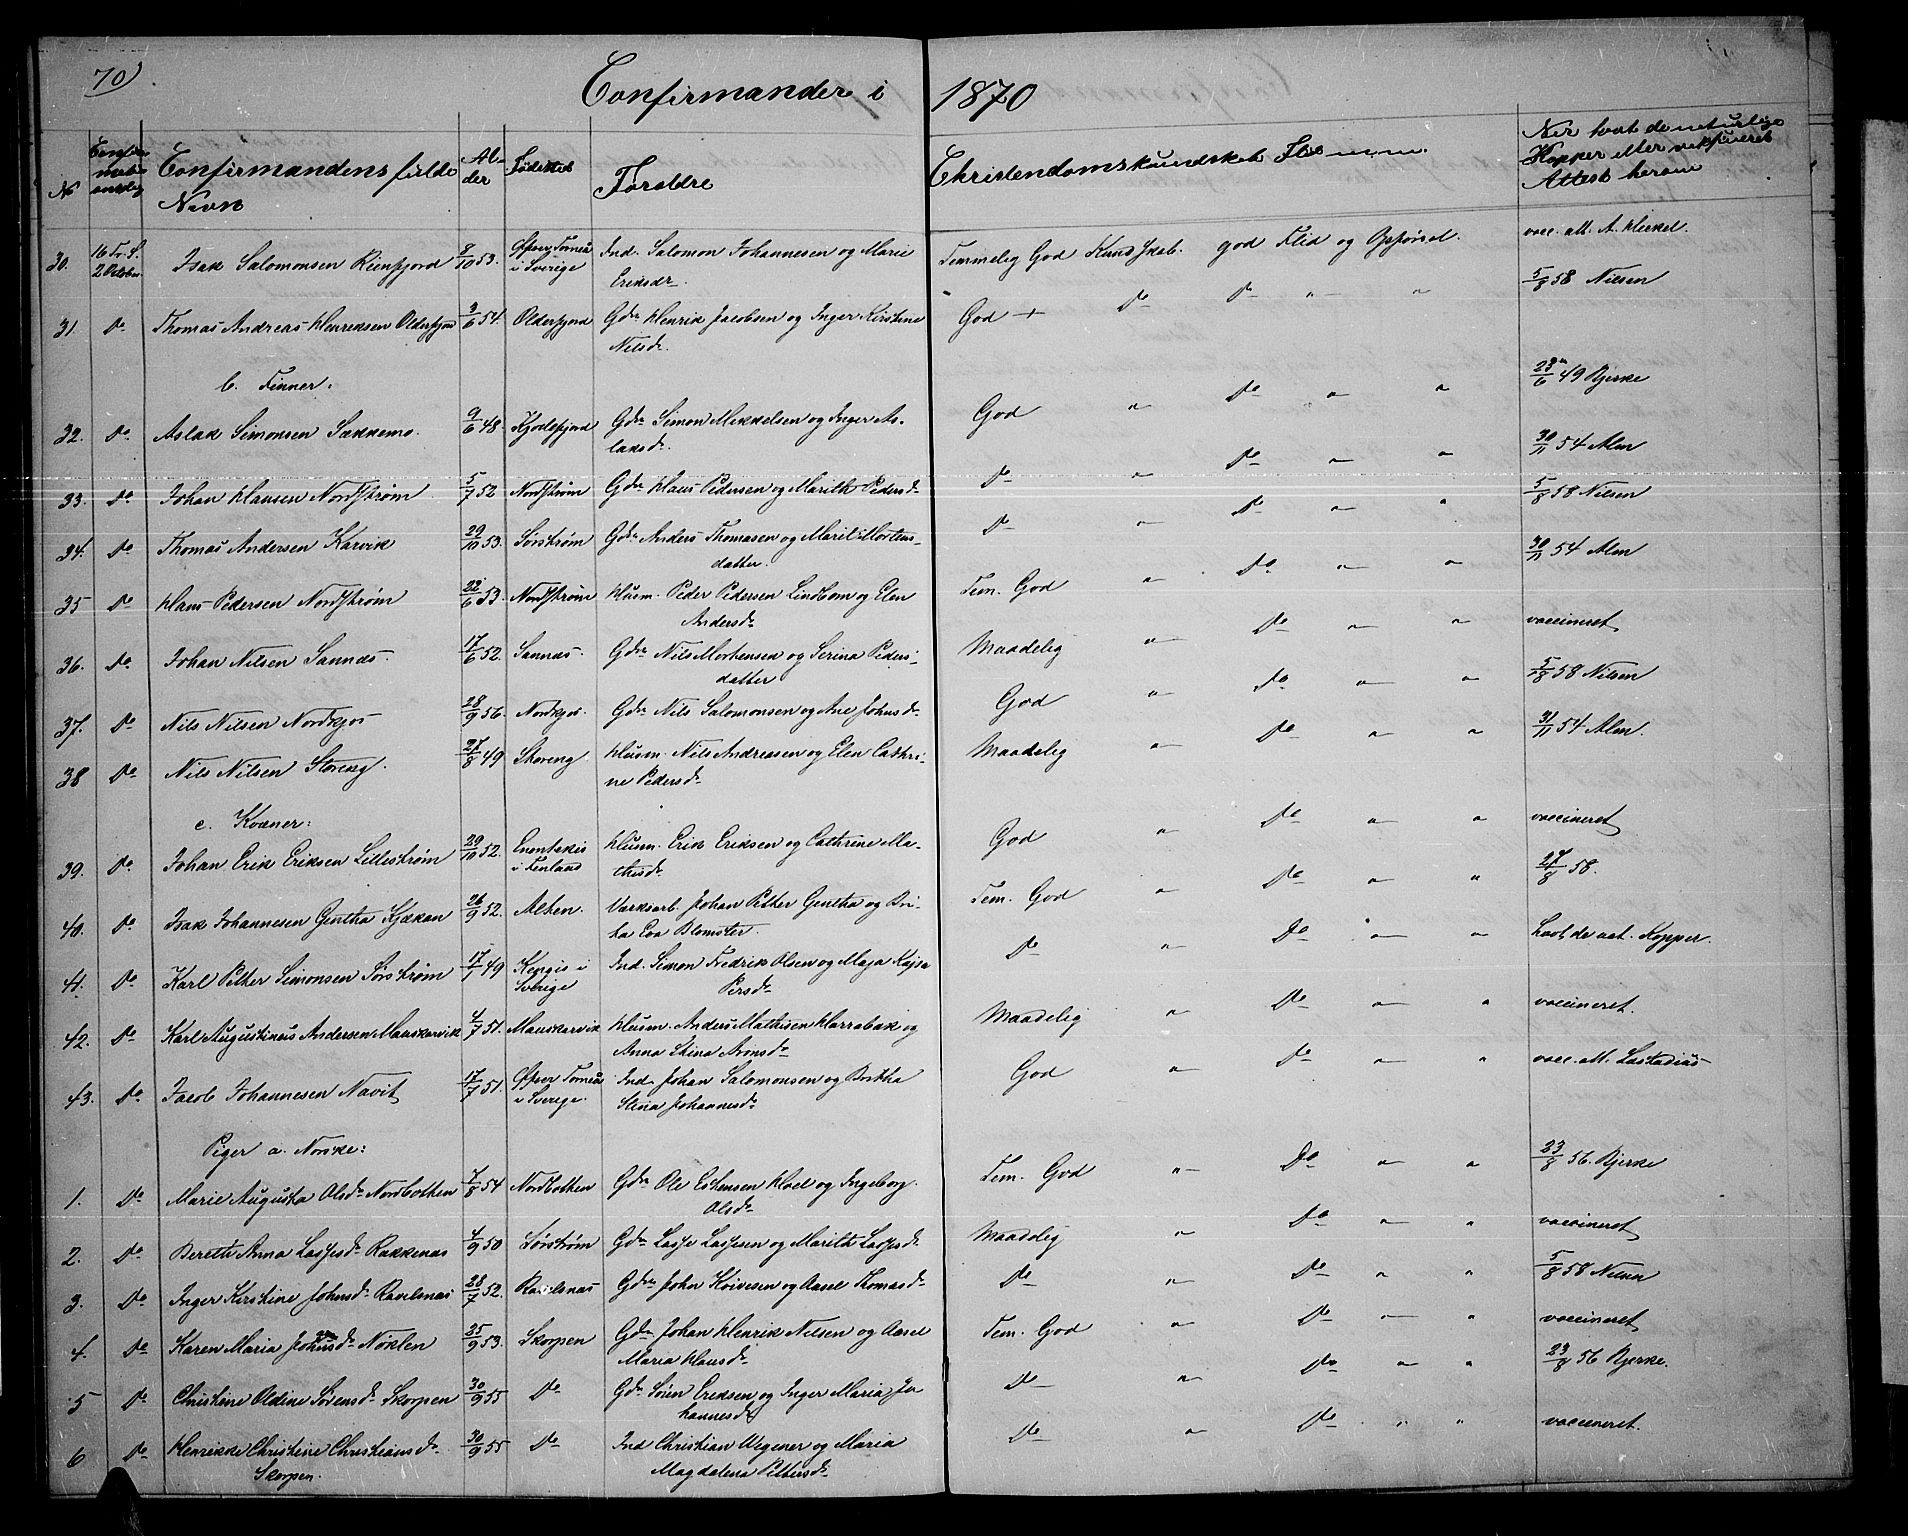 70)
Confirmander i 1870
No
Confirmandens fulde Navn
Al-
der
Fødested
Forældre
Christendomskundskab Flid
Naar havt de naturlige
Kopper eller vakcineret
Attest herom
30. 16 Tr. S. 2 Octobr. Isak Salomonsen Reienfjord 8/10 53. Øfver Torneå i Sverige Ind. Salomon Johannesen og Marie Eriksdr. Temmelig God Kundskab. god Flid og Opførsel. vacc. att. A. Heikel.
31. Do Thomas Andreas Henriksen Olderfjord 3/6 54. Olderfjord Gdm Henrik Jacobsen og Inger Kirstine Nilsdr. God + Do Do " " 5/8 58 Nilsen
b. Finner.
32. Do Aslak Simonsen Sakkemo. 9/6 48. Kjødefjord Gdm Simon Mikkelsen og Inger As-
laksdr. God " Do " " 23/6 49 Bjerke
33. Do Johan Hansen Nordstrøm 5/7 52 Nordstrøm Gdm Hans Pedersen og Marith Pedersdr Do " Do " " 30/11 54 Alm
34. Do Thomas Andersen Karvik 29/10 53. Sørstrøm Gdm Anders Thomasen og Marit Mortens-
datter. Do " Do " " 5/8 58 Nilsen
35 Do Hans Pedersen Nordstrøm 22/6 53. Nordstrøm Husm. Peder Pedersen Lindbom og Elen Andersdr Tem. God " Do " " 30/11 54 Alm
36. Do Johan Nilsen Sannæs. 17/6 52. Sannæs. Gdm Nils Mortensen og Serina Peders-
datter Maadelig " Do " " vaccineret
37. Do Nils Nilsen Nordkjos 28/9 56. Nordkjos. Gdm Nils Salomonsen og Ane Johnsdr God " Do " " 5/8 58 Nilsen
38 Do Nils Nilsen Storeng. 27/8 49 Storeng. Husm. Nils Andreasen og Elen Cathri-
ne Pedersdr Maadelig " Do " " 31/11 54 Alm.
c. Kvæner:
39. Do Johan Erik Eriksen Lillestrøm 29/10 52. Enontekis i Finland Husm. Erik Eriksen og Cathrine Ma-
thisdr God " Do " " vaccineret
40. Do Isak Johannesen Gentha Kjækan 26/9 52. Alten. Værksarb. Johan Petter Gentha og Bri-
ta Eva Blomster. Tem. God " Do " " 27/8 58.
41. Do Karl Petter Simonsen Sørstrøm 17/1 49 Kengis i Sverige Ind. Simon Fredrik Olsen og Maja Kajsa Persdr Do " Do " " havt de nat. Kopper.
42. Do Karl Augustinus Andersen Mauskarvik 4/7 51. Mauskarvik Husm. Anders Mathisen Harrabak og Anna Stina Aronsdr Maadelig " Do " " vaccineret.
43. Do Jacob Johannesen Navit 17/7 51. Øfver Torneå i Sverige. Ind. Johan Salomonsen og Britha Stina Johannesdr God " Do " " vacc. att. Læstadius
Piger a. Norske:
1. Do Marie Augusta Olsdr Nordbotten 7/8 54 Nordbotten Gdm Ole Estensen Hoel og Ingeborg Olsdr Tem. God " Do " " 23/8 56. Bjerke
2. Do Bereth Anna Lassesdr Rakkenæs 4/9 50 Sørstrøm Gdm Lasse Lassesen og Marith Lassesdr Maadelig " Do " " vaccineret
3. Do Inger Kirstine Johnsdr Ravelsnæs 28/7 52. Ravelsnæs Gdm John Koivesen og Aasel Thomasdr Do " Do " " 5/8 58 Nilsen
4. Do Karen Maria Johansdr Nøklen 25/9 53. Skorpen Gdm Johan Henrik Nilsen og Aasel Maria Hansdr Tem. God " Do " " vaccineret
5 Do Christine Oldine Sørensdr Skorpen 30/9 55 Do Gdm Søren Eriksen og Inger Maria Jo-
hannesdr Do " Do " " 23/8 56 Bjerke.
6 Do Henrikke Christine Christiansdr Skorpen. 30/9 55 Do Ind Christian Wegener og Maria Magdalena Pettersdr Do " Do " " vaccineret.